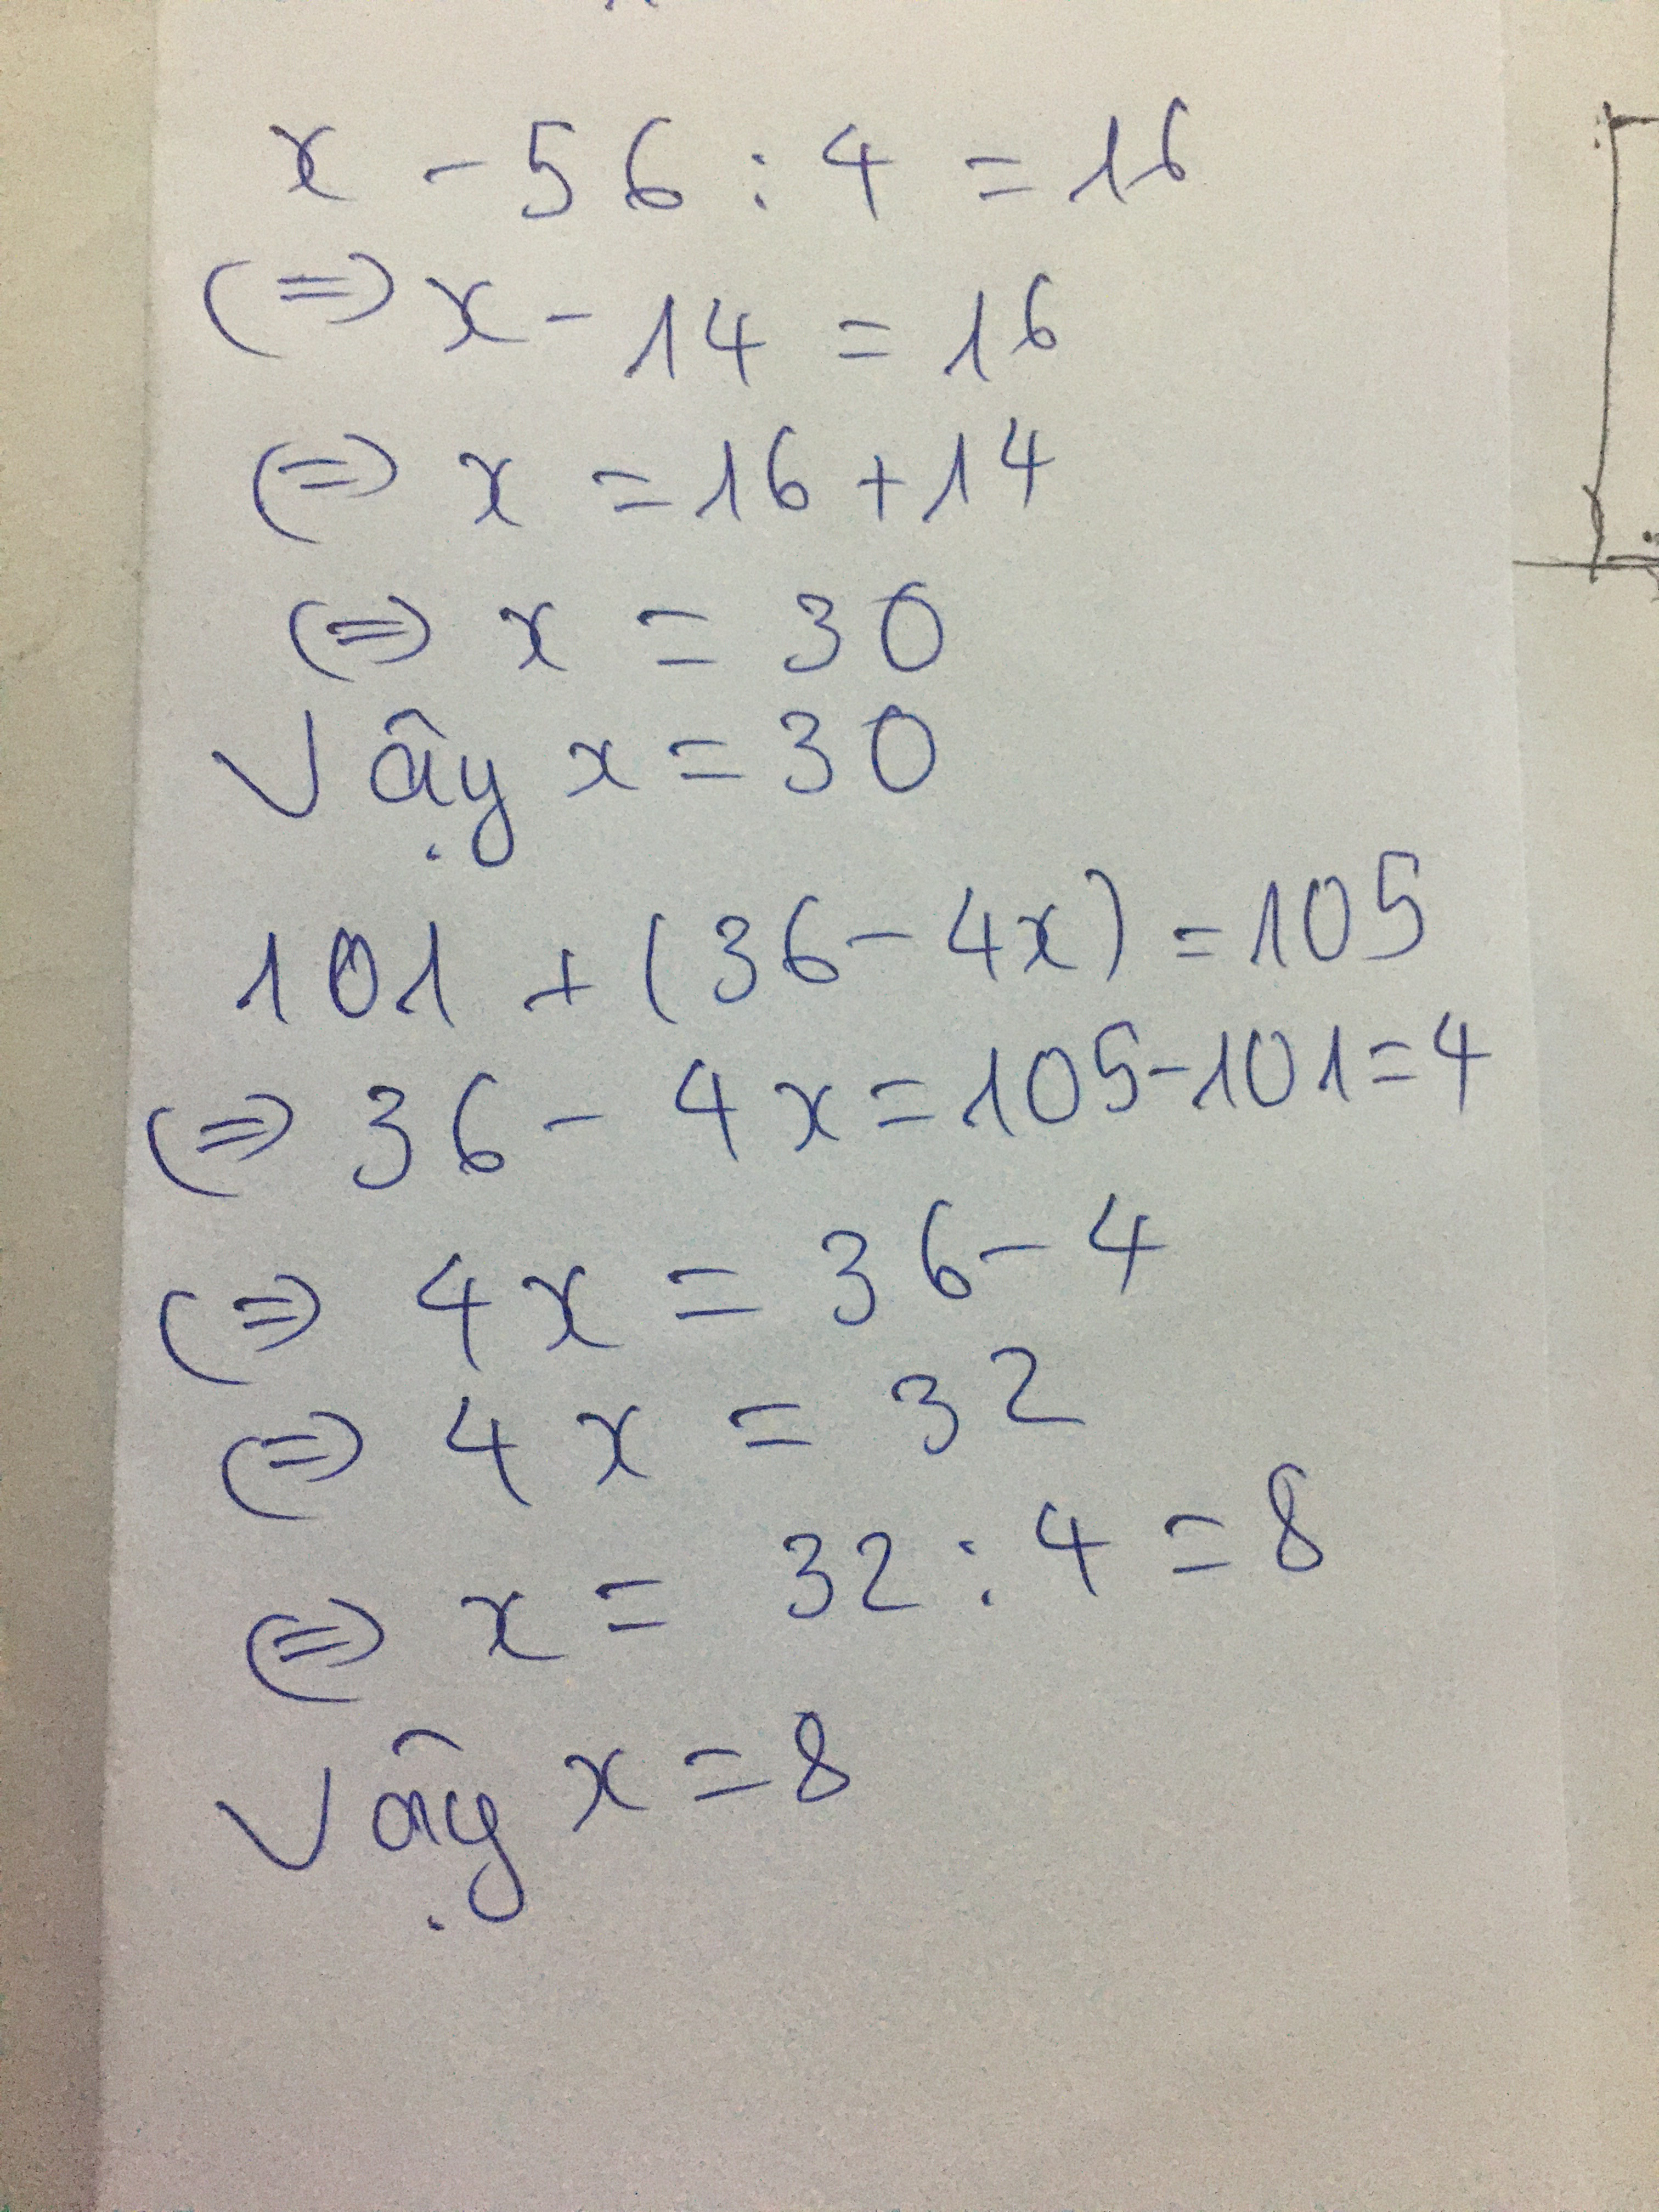 x - 56 : 4 = 16
(=) x - 14 = 16
(=) x = 16 + 14
(=) x = 30
Vậy x = 30
101 + (36 - 4x) = 105
(=) 36 - 4x = 105 - 101 = 4
(=) 4x = 36 - 4
(=) 4x = 32
(=) x = 32 : 4 = 8
Vậy x = 8